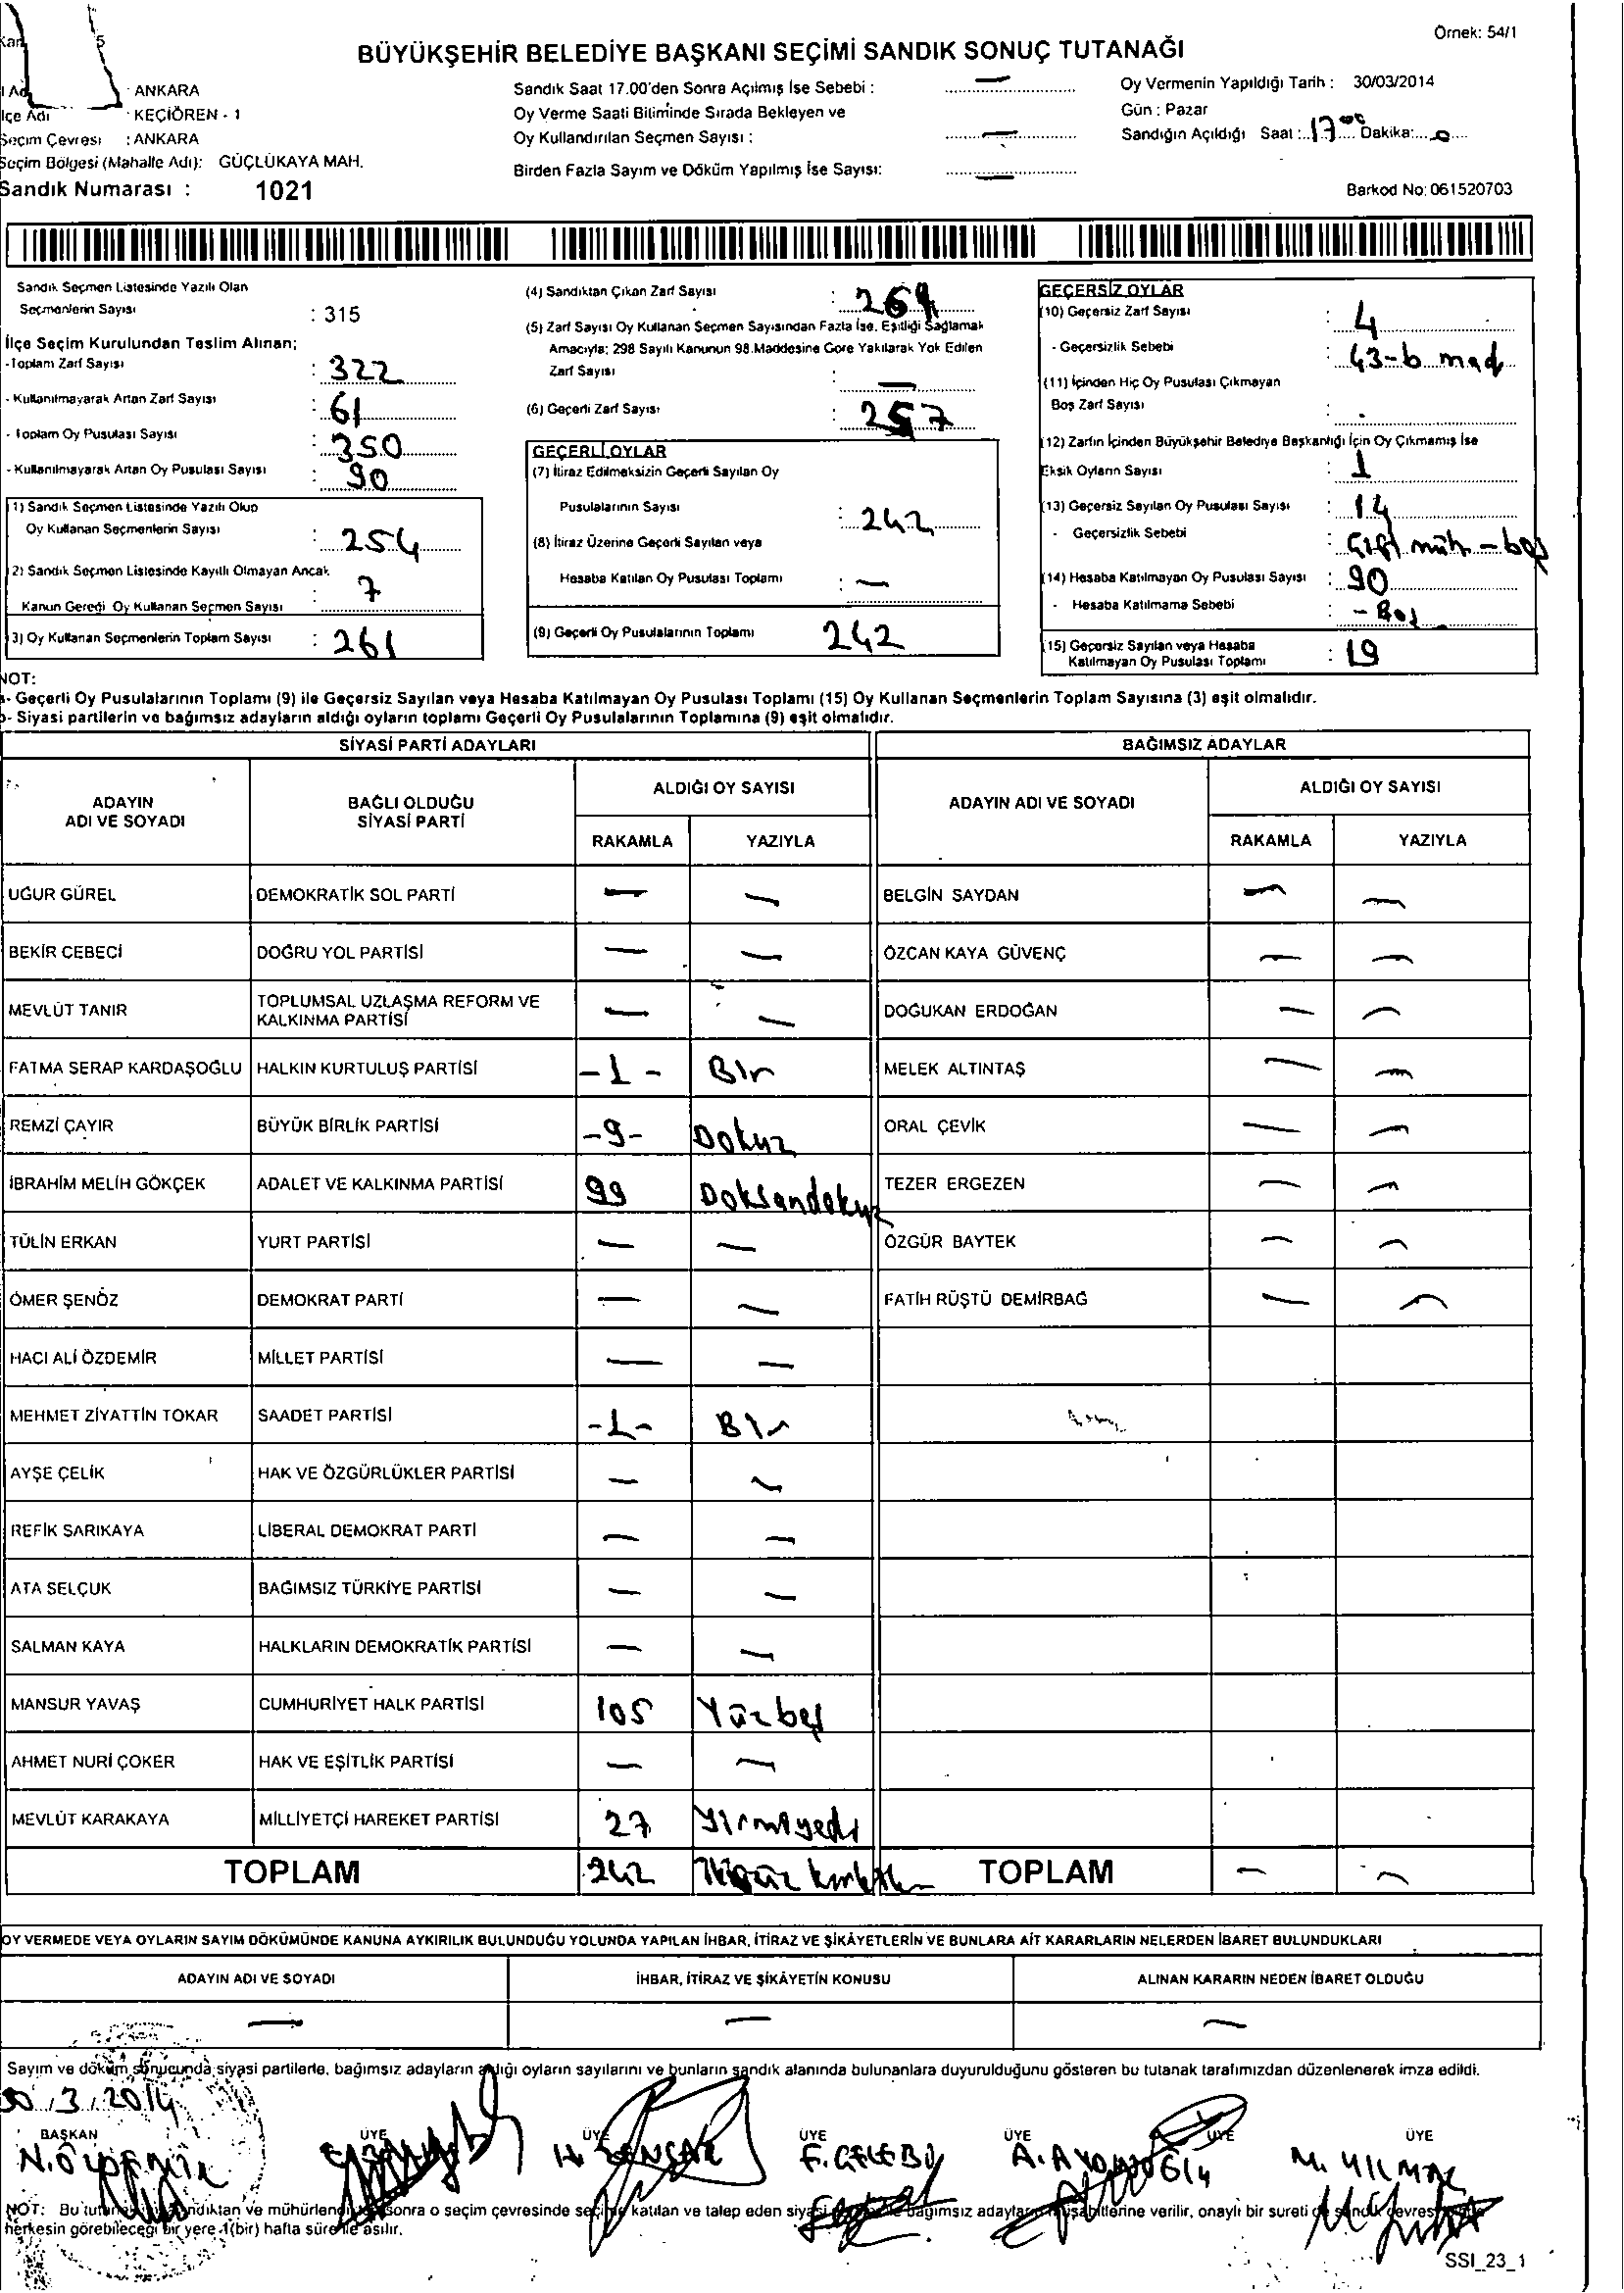 Örnek: 54/1
BÜYÜKŞEHİR BELEDİYE BAŞKANI SEÇİMİ SANDIK SONUÇ TUTANAĞI
: ANKARA
İlçe Adı : KEÇİÖREN - 1
Seçim Çevresi : ANKARA
Seçim Bölgesi (Mahalle Adı): GÜÇLÜKAYA MAH.
Sandık Numarası : 1021
Sandık Saat 17.00'den Sonra Açılmış İse Sebebi : —
Oy Verme Saati Bitiminde Sırada Bekleyen ve
Oy Kullandırılan Seçmen Sayısı : —
Birden Fazla Sayım ve Döküm Yapılmış İse Sayısı: —
Oy Vermenin Yapıldığı Tarih : 30/03/2014
Gün : Pazar
Sandığın Açıldığı Saat : 17 00 Dakika: 0
Barkod No: 061520703
Sandık Seçmen Listesinde Yazılı Olan
Seçmenlerin Sayısı : 315
İlçe Seçim Kurulundan Teslim Alınan;
-Toplam Zarf Sayısı : 322
- Kullanılmayarak Artan Zarf Sayısı : 61
- Toplam Oy Pusulası Sayısı : 350
- Kullanılmayarak Artan Oy Pusulası Sayısı : 90
1) Sandık Seçmen Listesinde Yazılı Olup
Oy Kullanan Seçmenlerin Sayısı : 254
2) Sandık Seçmen Listesinde Kayıtlı Olmayan Ancak
Kanun Gereği Oy Kullanan Seçmen Sayısı : 7
3) Oy Kullanan Seçmenlerin Toplam Sayısı : 261
(4) Sandıktan Çıkan Zarf Sayısı :
(5) Zarf Sayısı Oy Kullanan Seçmen Sayısından Fazla İse, Eşitliği Sağlamak
Amacıyla; 298 Sayılı Kanunun 98.Maddesine Göre Yakılarak Yok Edilen
Zarf Sayısı : —
(6) Geçerli Zarf Sayısı : 257
GEÇERLİ OYLAR
(7) İtiraz Edilmeksizin Geçerli Sayılan Oy
Pusulalarının Sayısı : 242
(8) İtiraz Üzerine Geçerli Sayılan veya
Hesaba Katılan Oy Pusulası Toplamı : —
(9) Geçerli Oy Pusulalarının Toplamı 242
GEÇERSİZ OYLAR
(10) Geçersiz Zarf Sayısı : 4
- Geçersizlik Sebebi : 43-b mad
(11) İçinden Hiç Oy Pusulası Çıkmayan
Boş Zarf Sayısı :
(12) Zarfın İçinden Büyükşehir Belediye Başkanlığı İçin Oy Çıkmamış İse
Eksik Oyların Sayısı : 1
(13) Geçersiz Sayılan Oy Pusulası Sayısı : 14
- Geçersizlik Sebebi : Çift müh - boş
(14) Hesaba Katılmayan Oy Pusulası Sayısı : 90
- Hesaba Katılmama Sebebi : - Boş
(15) Geçersiz Sayılan veya Hesaba
Katılmayan Oy Pusulası Toplamı : 19
NOT:
a- Geçerli Oy Pusulalarının Toplamı (9) ile Geçersiz Sayılan veya Hesaba Katılmayan Oy Pusulası Toplamı (15) Oy Kullanan Seçmenlerin Toplam Sayısına (3) eşit olmalıdır.
b- Siyasi partilerin ve bağımsız adayların aldığı oyların toplamı Geçerli Oy Pusulalarının Toplamına (9) eşit olmalıdır.
SİYASİ PARTİ ADAYLARI BAĞIMSIZ ADAYLAR
ADAYIN ADI VE SOYADI BAĞLI OLDUĞU SİYASİ PARTİ ALDIĞI OY SAYISI ADAYIN ADI VE SOYADI ALDIĞI OY SAYISI
RAKAMLA YAZIYLA RAKAMLA YAZIYLA
UĞUR GÜREL DEMOKRATİK SOL PARTİ — — BELGİN SAYDAN — —
BEKİR CEBECİ DOĞRU YOL PARTİSİ — — ÖZCAN KAYA GÜVENÇ — —
MEVLÜT TANIR TOPLUMSAL UZLAŞMA REFORM VE KALKINMA PARTİSİ — — DOĞUKAN ERDOĞAN — —
FATMA SERAP KARDAŞOĞLU HALKIN KURTULUŞ PARTİSİ -1- Bir MELEK ALTINTAŞ — —
REMZİ ÇAYIR BÜYÜK BİRLİK PARTİSİ -9- Dokuz ORAL ÇEVİK — —
İBRAHİM MELİH GÖKÇEK ADALET VE KALKINMA PARTİSİ 99 Doksandokuz TEZER ERGEZEN — —
TÜLİN ERKAN YURT PARTİSİ — — ÖZGÜR BAYTEK — —
ÖMER ŞENÖZ DEMOKRAT PARTİ — — FATİH RÜŞTÜ DEMİRBAĞ — —
HACI ALİ ÖZDEMİR MİLLET PARTİSİ — —
MEHMET ZİYATTİN TOKAR SAADET PARTİSİ -1- Bir
AYŞE ÇELİK HAK VE ÖZGÜRLÜKLER PARTİSİ — —
REFİK SARIKAYA LİBERAL DEMOKRAT PARTİ — —
ATA SELÇUK BAĞIMSIZ TÜRKİYE PARTİSİ — —
SALMAN KAYA HALKLARIN DEMOKRATİK PARTİSİ — —
MANSUR YAVAŞ CUMHURİYET HALK PARTİSİ 105 Yüzbeş
AHMET NURİ ÇOKER HAK VE EŞİTLİK PARTİSİ — —
MEVLÜT KARAKAYA MİLLİYETÇİ HAREKET PARTİSİ 27 Yirmiyedi
TOPLAM 242 İkiyüz kırkiki TOPLAM — —
OY VERMEDE VEYA OYLARIN SAYIM DÖKÜMÜNDE KANUNA AYKIRILIK BULUNDUĞU YOLUNDA YAPILAN İHBAR, İTİRAZ VE ŞİKÂYETLERİN VE BUNLARA AİT KARARLARIN NELERDEN İBARET BULUNDUKLARI
ADAYIN ADI VE SOYADI İHBAR, İTİRAZ VE ŞİKÂYETİN KONUSU ALINAN KARARIN NEDEN İBARET OLDUĞU
— — —
Sayım ve döküm sonucunda siyasi partilerle, bağımsız adayların aldığı oyların sayılarını ve bunların sandık alanında bulunanlara duyurulduğunu gösteren bu tutanak tarafımızdan düzenlenerek imza edildi.
30/3/2014
BAŞKAN ÜYE ÜYE ÜYE ÜYE ÜYE ÜYE
N. ÖZDEMİR H. F. ÇELEBİ A. M. YILMAZ
NOT: Bu tutanak sandıktan ve mühürlendikten sonra o seçim çevresinde seçime katılan ve talep eden siyasi bağımsız adaylar müşahitlerine verilir, onaylı bir sureti de sandık çevresinde
herkesin görebileceği bir yere 1(bir) hafta süre ile asılır.
SSI_23_1